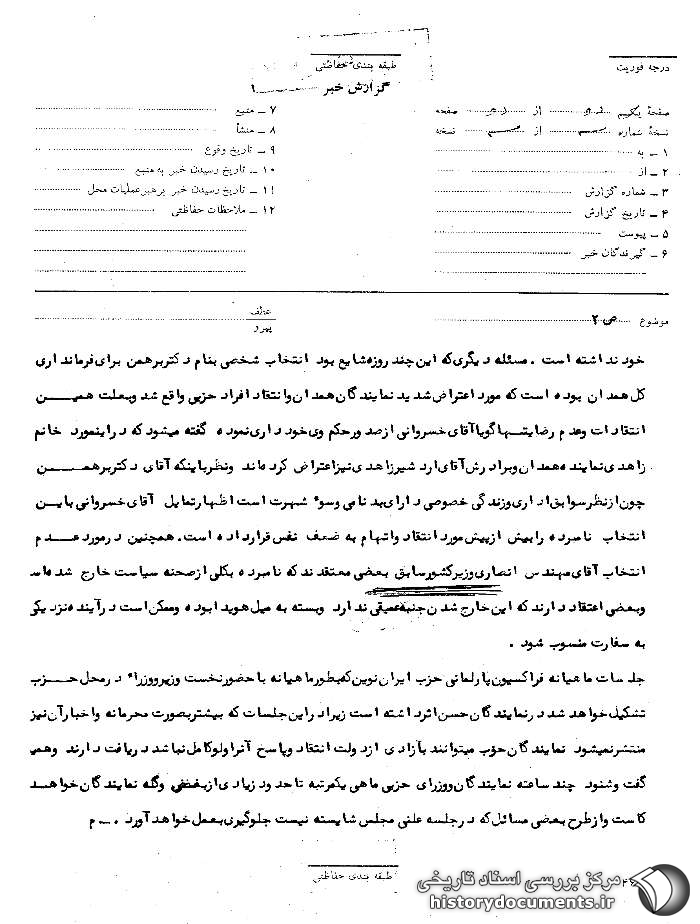 طبقه بندی حفاظتی
درجه فوریت
گزارش خبر
صفحه یکم از صفحه
نسخه شماره از نسخه
۱ ـ به
۲ ـ از
۳ ـ شماره گزارش
۴ ـ تاریخ گزارش
۵ ـ پیوست
۶ ـ گیرندگان خبر
۷ ـ منبع
۸ ـ منشأ
۹ ـ تاریخ وقوع
۱۰ ـ تاریخ رسیدن خبر به منبع
۱۱ ـ تاریخ رسیدن خبر برهبر عملیات محل
۱۲ ـ ملاحظات حفاظتی
موضوع ص ۲
عطف
پیرو
خود نداشته است . مسئله دیگری که این چند روزه شایع بود انتخاب شخصی بنام دکتر برهمن برای فرمانداری
کل همدان بوده است که مورد اعتراض شدید نمایندگان همدان وانتقاد افراد حزبی واقع شد وبعلت همین
انتقادات وعدم رضایتها گویا آقای خسروانی از صدور حکم وی خودداری نموده گفته میشود که دراینمورد خانم
زاهدی نماینده همدان وبرادرش آقای اردشیر زاهدی نیز اعتراض کرده اند ونظر باینکه آقای دکتر برهمن
چون از نظر سوابق اداری وزندگی خصوصی دارای بدنامی وسوء شهرت است اظهار تمایل آقای خسروانی باین
انتخاب نامبرده را بیش از پیش مورد انتقاد واتهام به ضعف نفس قرار داده است. همچنین درمورد عدم
انتخاب آقای مهندس انصاری وزیر کشور سابق بعضی معتقدند که نامبرده بکلی از صحنه سیاست خارج شده است
وبعضی اعتقاد دارند که این خارج شدن جنبه عمیقی ندارد وبسته به میل هویدا بوده وممکن است در آینده نزدیکی
به سفارت منسوب شود .
جلسات ماهیانه فراکسیون پارلمانی حزب ایران نوین که بطور ماهیانه با حضور نخست وزیر ووزراء درمحل حزب
تشکیل خواهد شد درنمایندگان حسن اثر داشته است زیرا در این جلسات که بیشتر بصورت محرمانه واخبار آن نیز
منتشر نمیشود نمایندگان حزب میتوانند بآزادی از دولت انتقاد وپاسخ آنرا ولو کامل نباشد دریافت دارند وهمین
گفت وشنود چند ساعته نمایندگان ووزرای حزبی ماهی یکمرتبه تا حدود زیادی از بغض وگله نمایندگان خواهد
کاست واز طرح بعضی مسائل که درجلسه علنی مجلس شایسته نیست جلوگیری بعمل خواهد آورد . ـ م
طبقه بندی حفاظتی
مرکز بررسی اسناد تاریخی
historydocuments.ir